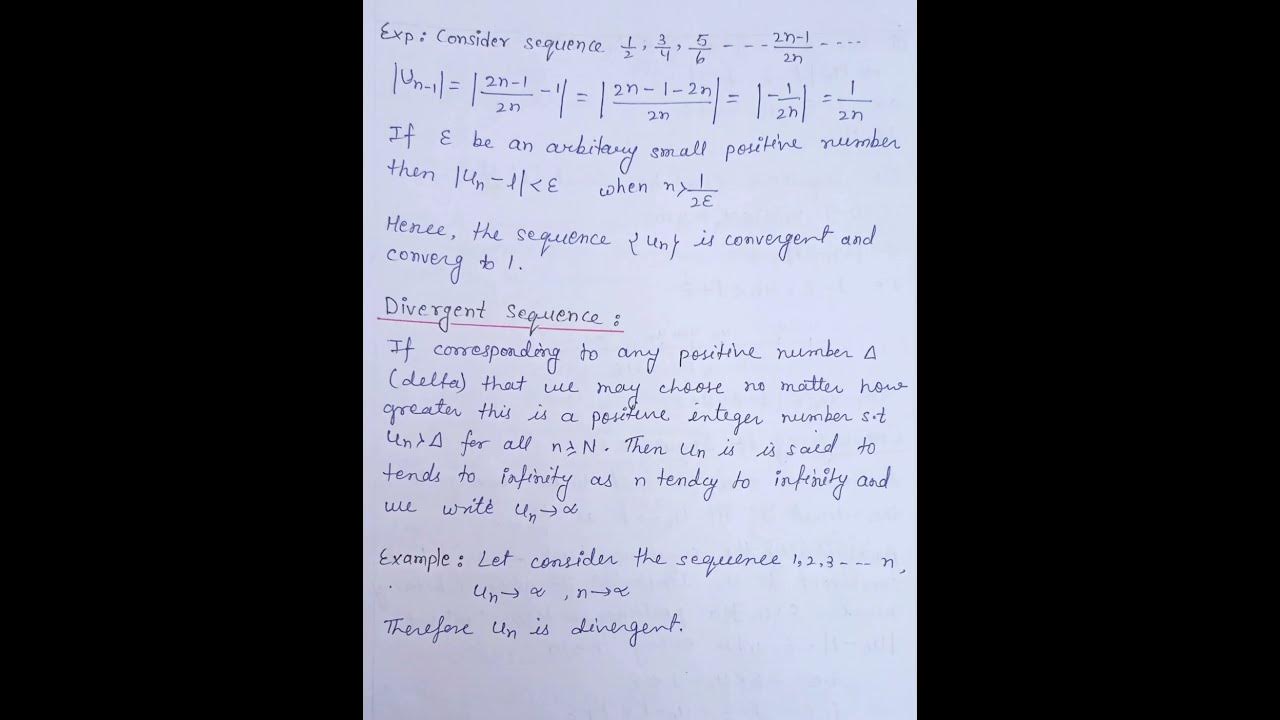 Exp: Consider sequence 1/2, 3/4, 5/6 --- (2n-1)/2n ----
|Un-1| = |(2n-1)/2n - 1| = |(2n-1-2n)/2n| = |-1/2n| = 1/2n
If ε be an arbitary small positive number
then |un-1|<ε when n>1/2ε
Hence, the sequence {un} is convergent and
converg to 1.
Divergent Sequence:
If corresponding to any positive number Δ
(delta) that we may choose no matter how
greater this is a positive integer number s.t
un>Δ for all n≥N. Then un is is said to
tends to infinity as n tendcy to infinity and
we write un→∝
Example: Let consider the sequence 1,2,3--- n,
un→∝, n→∝
Therefore un is divergent.